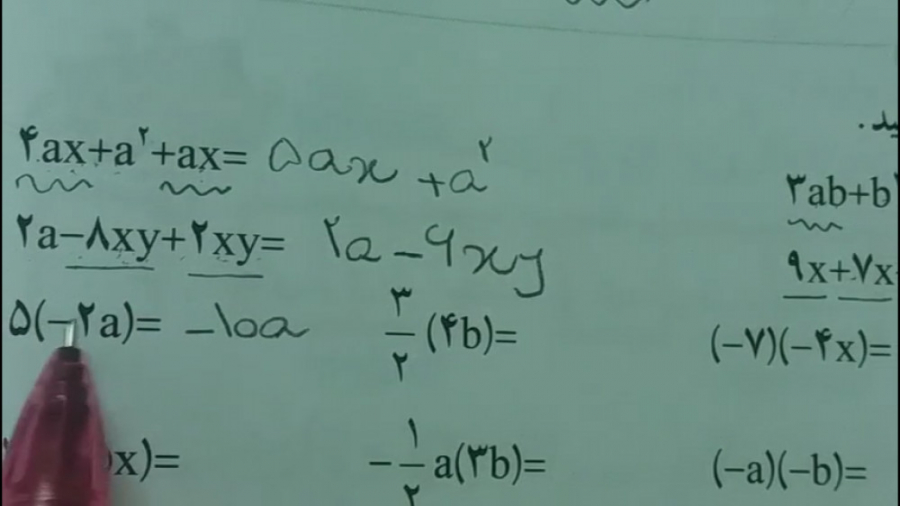 ۴ax+a²+ax= ۵ax +a²
۳ab+b
۲a−۸xy+۲xy= ۲a −۶xy
۹x+۷x
۵(−۲a)= −۱۰a
۳/۲ (۴b)=
(−۷)(−۴x)=
x)=
−۱/۲ a(۳b)=
(−a)(−b)=